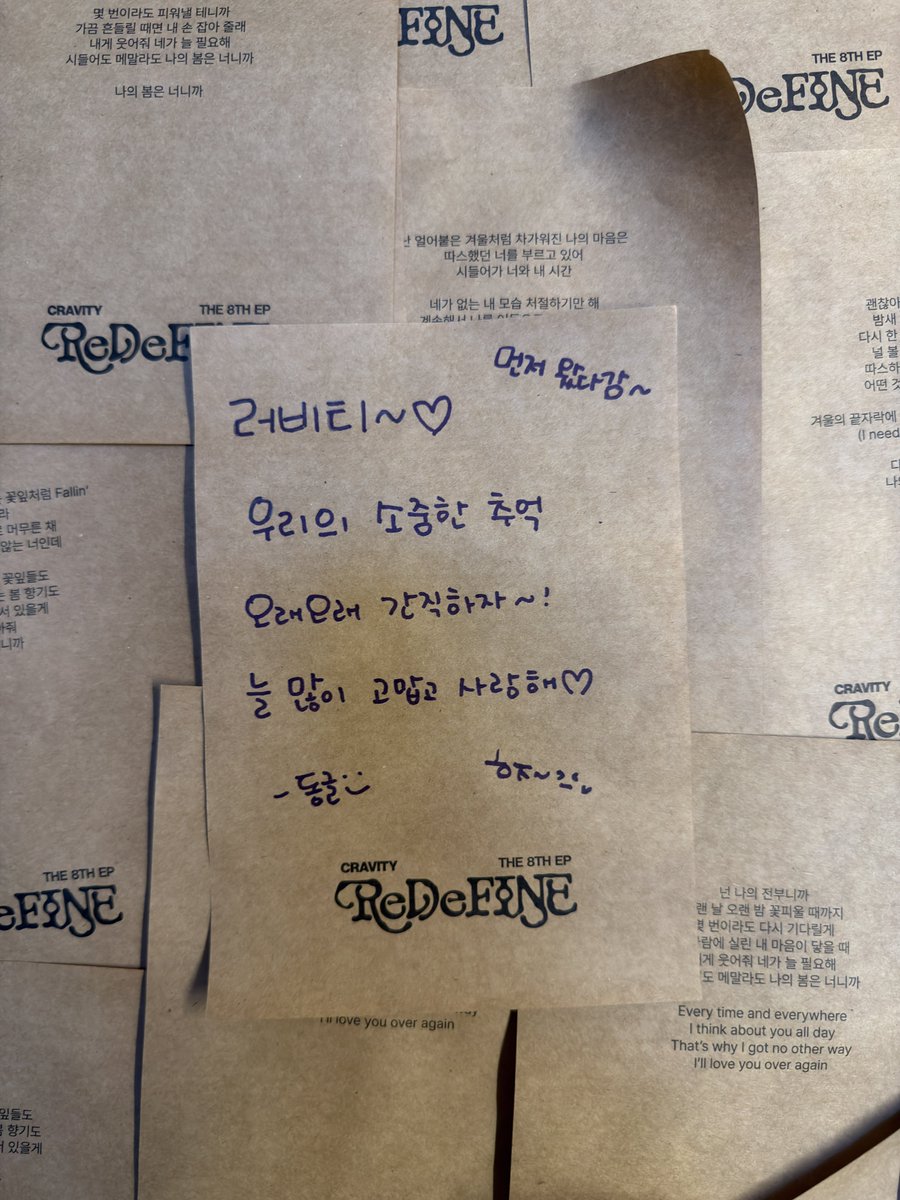 몇 번이라도 피워낼 테니까
가끔 흔들릴 때면 내 손 잡아 줄래
내게 웃어줘 네가 늘 필요해
시들어도 메말라도 나의 봄은 너니까
나의 봄은 너니까
CRAVITY THE 8TH EP
ReDeF
FINE
THE 8TH EP
DeFINE
얼어붙은 겨울처럼 차가워진 나의 마음은
따스했던 너를 부르고 있어
시들어가 너와 내 시간
네가 없는 내 모습 처절하기만 해
괜찮아
밤새
다시 한
널 볼
따스하
어떤 것
겨울의 끝자락에
(I need
먼저 왔다감~
러비티~♡
우리의 소중한 추억
오래오래 간직하자~!
늘 많이 고맙고 사랑해♡
-동글
CRAVITY THE 8TH EP
ReDeFINE
꽃잎처럼 Fallin'
머무른 채
않는 너인데
꽃잎들도
봄 향기도
서 있을게
THE 8TH EP
eFINE
CRAVITY
Re
넌 나의 전부니까
랜 날 오랜 밤 꽃피울 때까지
번이라도 다시 기다릴게
람에 실린 내 마음이 닿을 때
게 웃어줘 네가 늘 필요해
도 메말라도 나의 봄은 너니까
Every time and everywhere
I think about you all day
That's why I got no other way
I'll love you over again
I'll love you over again
잎들도
향기도
있을게